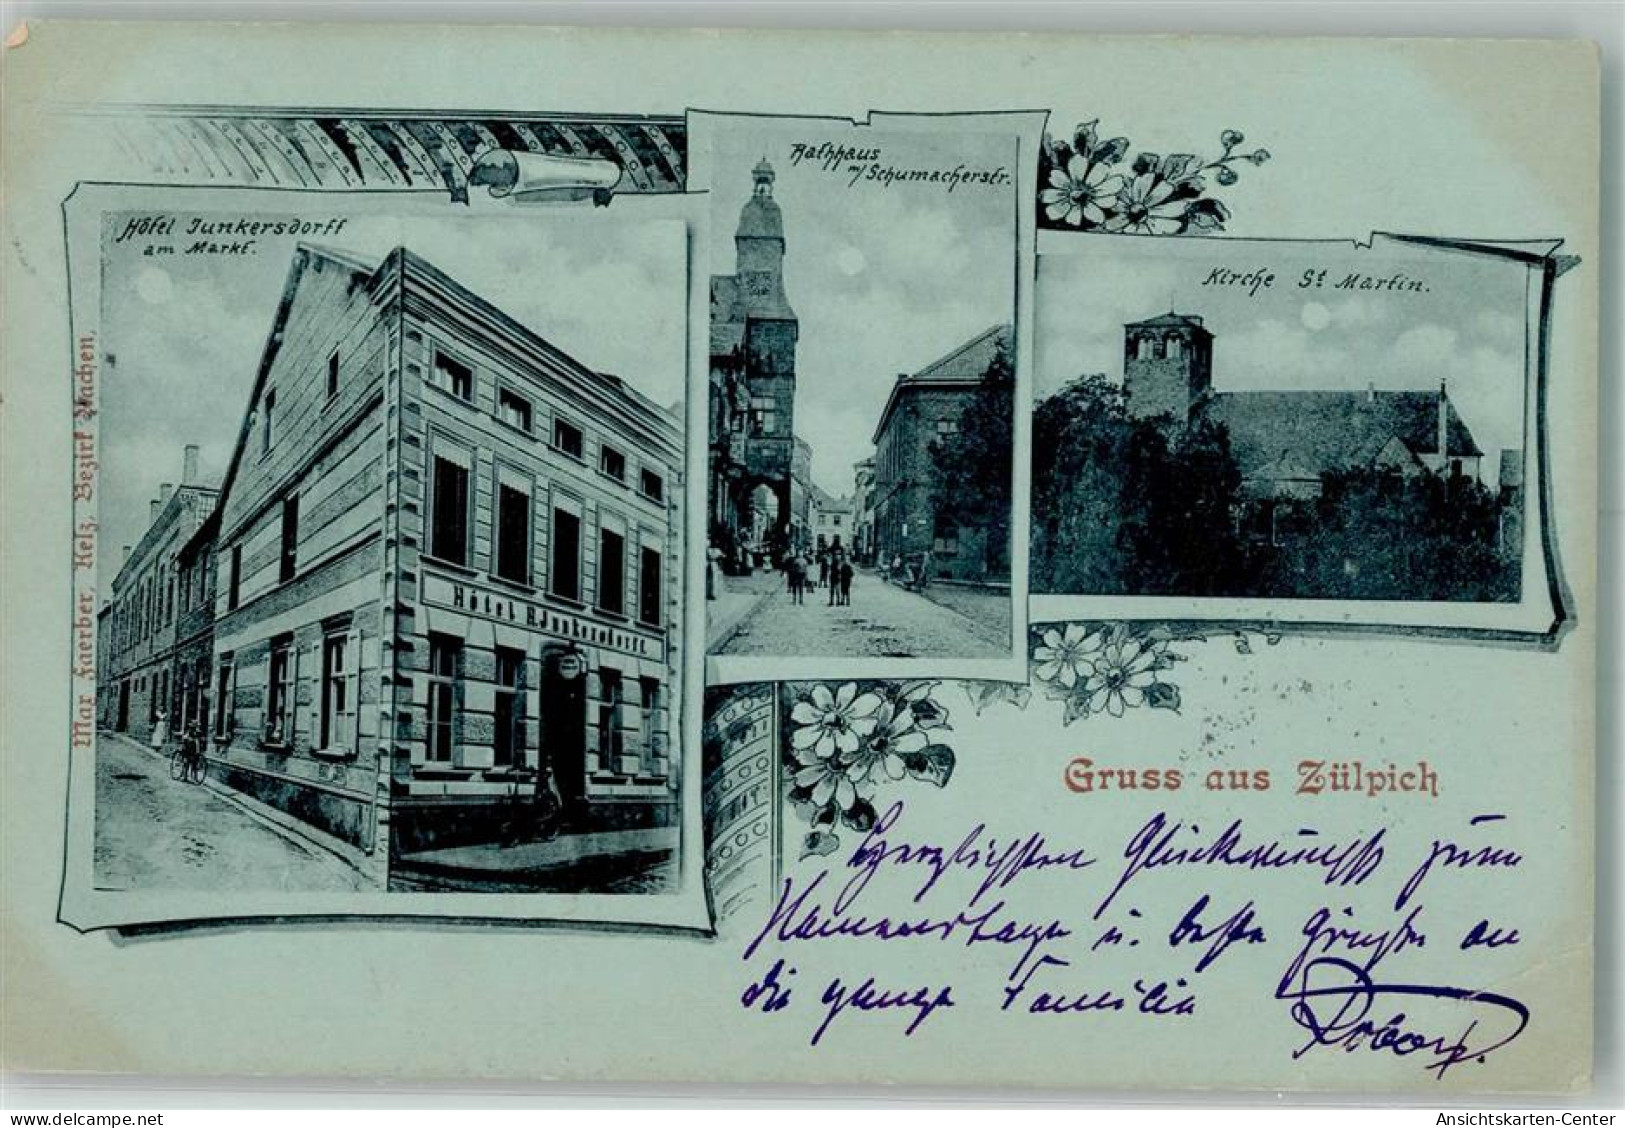 Hôtel Junkersdorff
am Markt.
Rathhaus
m/Schumacherstr.
Kirche St Martin.
Hôtel R. Junkersdorff.
Max Faerber, Kelz, Bezirk Aachen.
Gruss aus Zülpich
Herzlichsten Glückwunsch zum
Namenstage u. beste Grüße an
die ganze Familie
delcampe.net
Ansichtskarten-Center